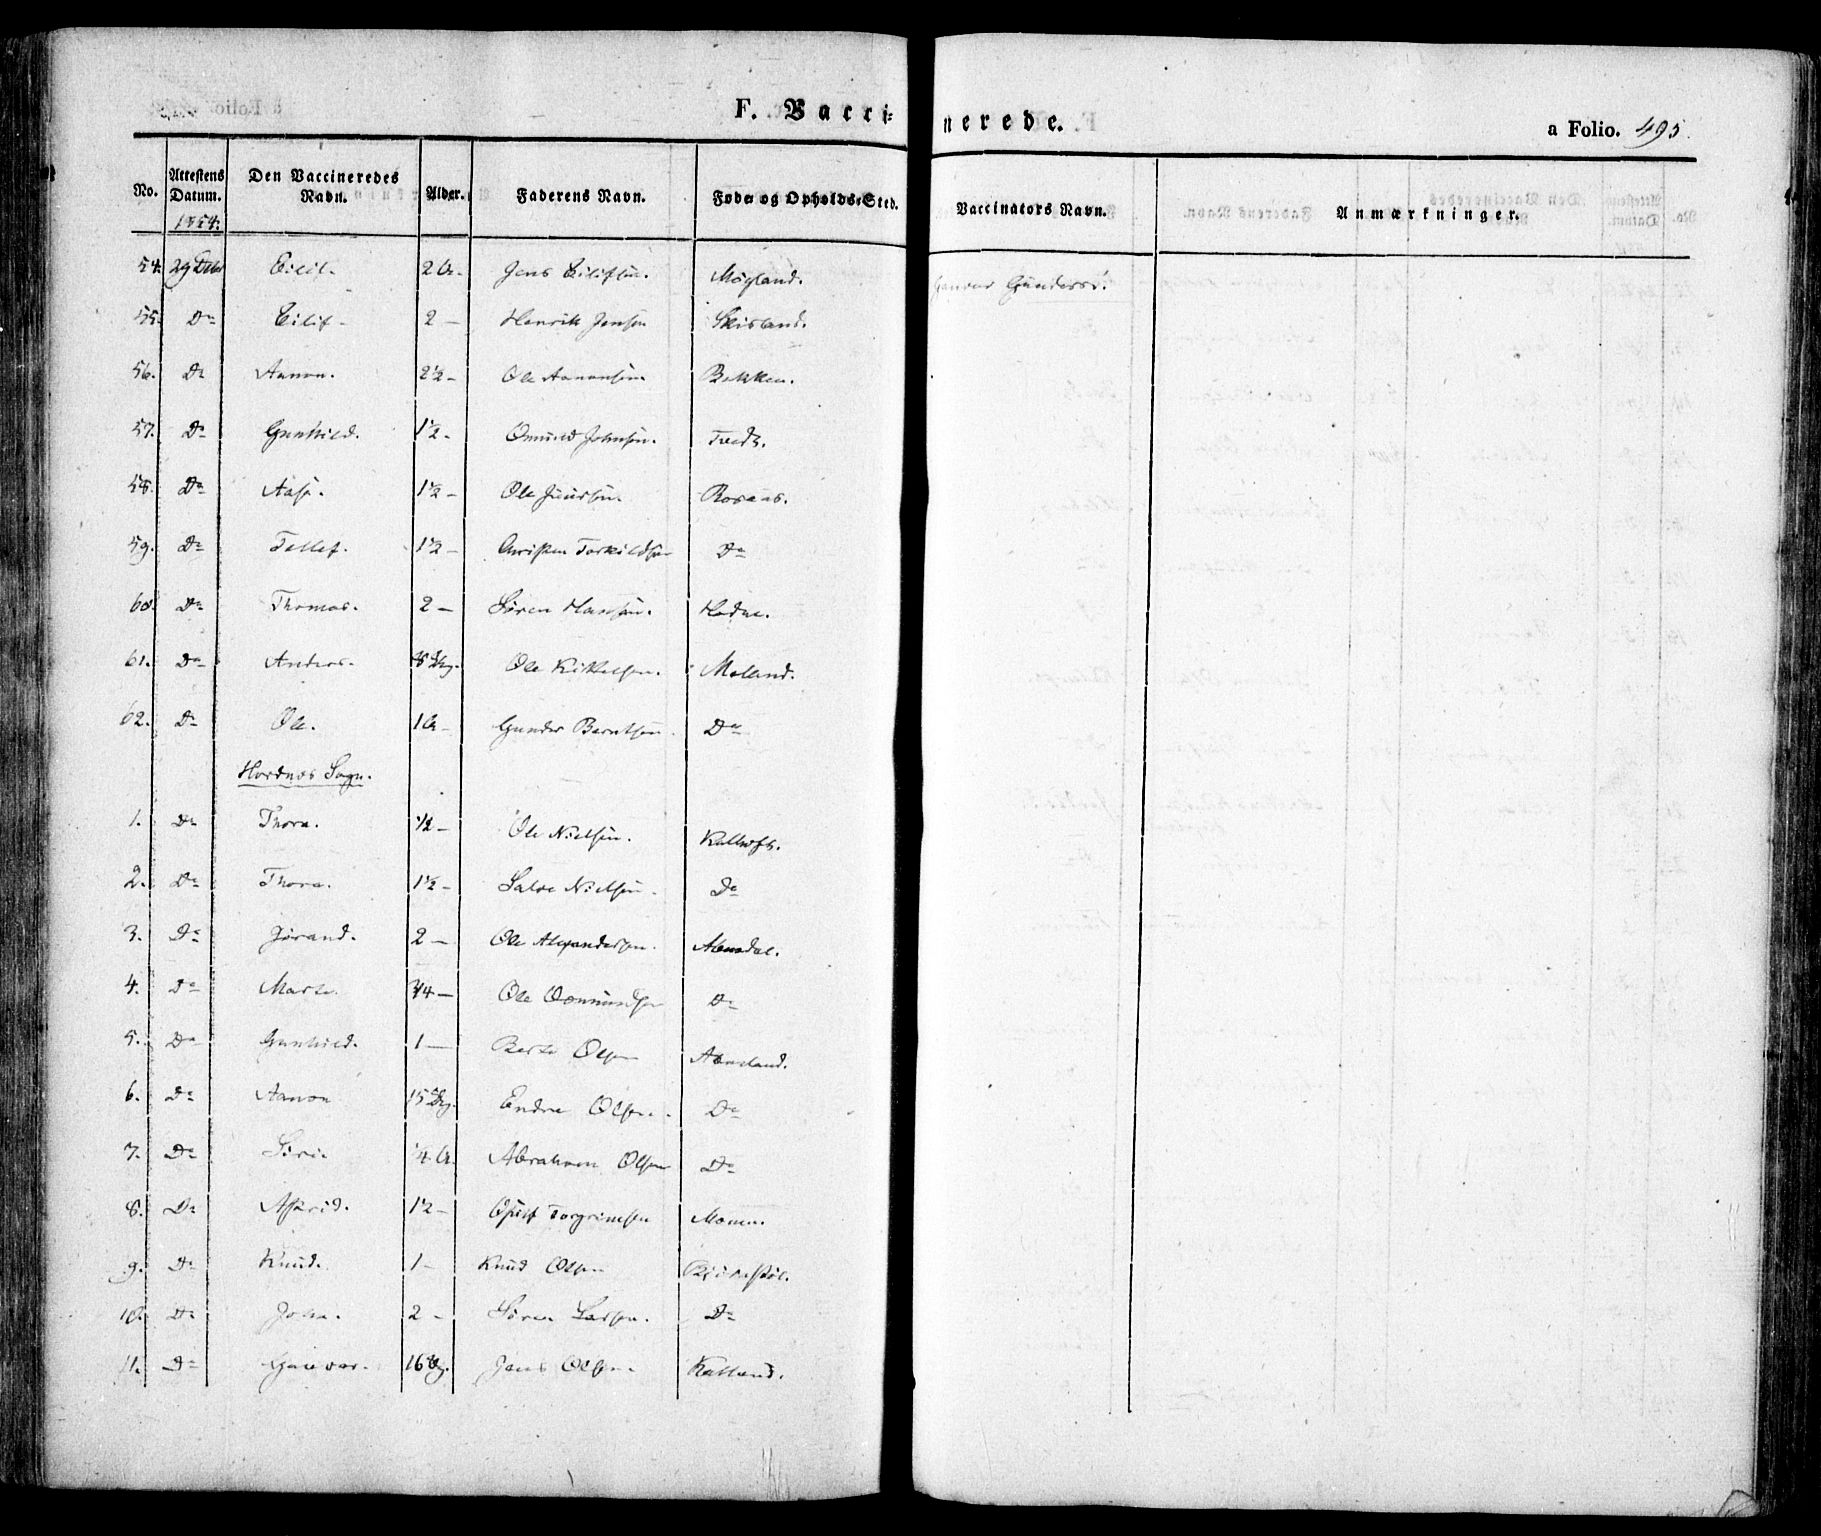 F. Vacci-nerede.
a Folio. 495.
No. Attestens Datum. Den Vaccineredes Navn. Alder. Faderens Navn. Føde og Opholds-Sted. Vaccinators Navn. Anmærkninger.
1854.
54. 29 Debr Eilif. 2 A. Jens Eilifsen. Møgland. Gunder
55. Do Eilif 2 — Henrik Jensen Skisland.
56. Do Aanon. 2½ — Ole Aanonsen Bakken.
57. Do Gunhild. 1½ — Omund Johnsen. Tveit.
58. Do Aase. 1½ — Ole Juursen. Rosnes.
59. Do Tellef. 1½ — Christen Torkildsen Do
60. Do Thomas. 2 — Søren Hansen. Hodne.
61. Do Anders. Ole Kittelsen. Moland.
62. Do Ole. 1 A — Gunder Berntsen. Do
Hordnes Sogn.
1. Do Thore. ½ — Ole Nielsen. Kalleoft.
2. Do Thore. 1½ — Salve Nielsen. Do
3. Do Jørand. 2 — Ole Alexandersen. Abusdal.
4. Do Marte ¾ — Ole Oommundsen Do
5. Do Gunhild. 1 — Berte Olsen Abusland.
6. Do Aanon 15 Ug. Endre Olsen. Do
7. Do Siri. ¼ A. Abraham Olsen Do
8. Do Astrid. 1½ — Osuf Torgrimsen Moene.
9. Do Knud. 1 — Knud Olsen
10. Do John. 2 — Søren Larsen. Do
11. Do Gunvor. 16 Ug. Jens Olsen. Kalland.